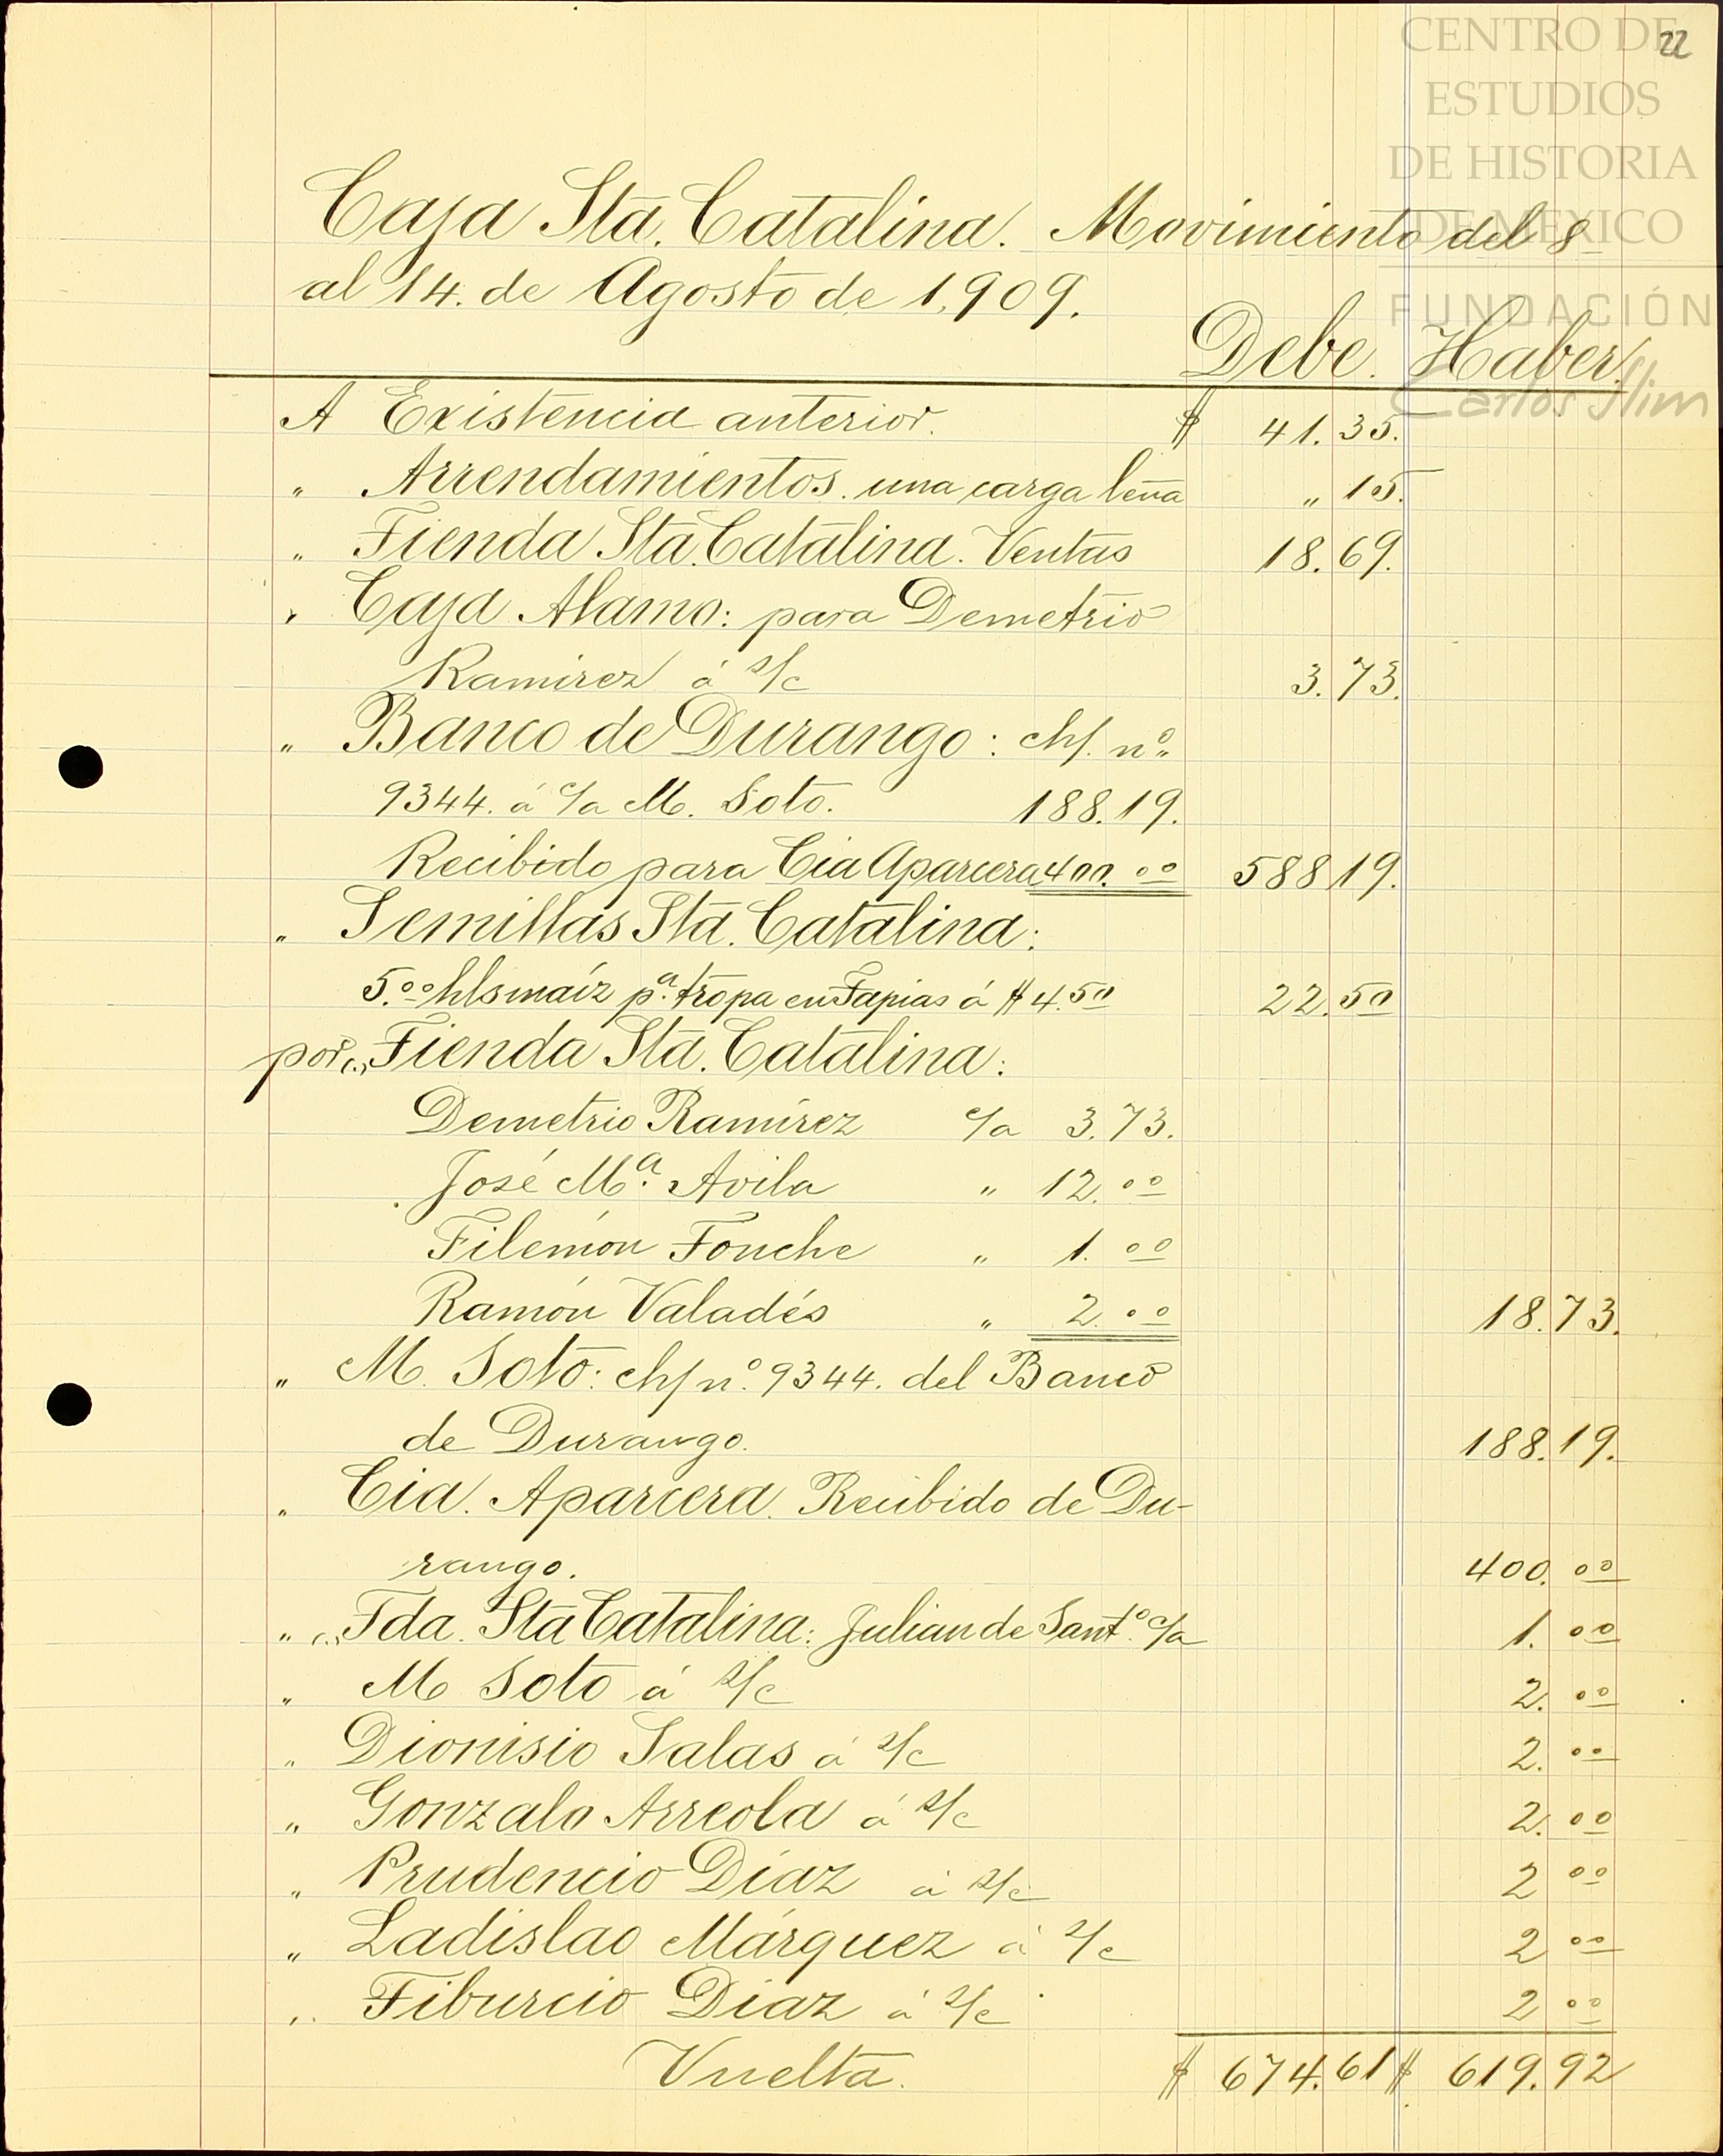 CENTRO DE
ESTUDIOS
DE HISTORIA
DE MÉXICO
FUNDACIÓN
Carlos Slim
22
Caja Sta. Catalina. Movimiento del 8
al 14. de Agosto de 1,909.
Debe. Haber.
A Existencia anterior. $ 41.35.
" Arrendamientos. una carga leña " 15.
" Tienda Sta. Catalina. Ventas 18.69.
" Caja Alamo: para Demetrio
Ramirez á s/c 3.73.
" Banco de Durango: ch/. nº
9344. á c/a M. Soto. 188.19.
Recibido para Cia Aparcera 400.00 588 19.
" Semillas Sta. Catalina:
5.00 hls maíz pª. tropa en Tapias á $ 4.50 22.50
por, Tienda Sta. Catalina:
Demetrio Ramírez c/a 3.73.
José Mª. Avila " 12.00
Filemón Fouche " 1.00
Ramón Valadés " 2.00 18.73.
" M. Soto: ch/ nº. 9344. del Banco
de Durango. 188.19.
" Cia. Aparcera. Recibido de Du-
rango. 400.00
" Tda. Sta Catalina: Julian de Santº. c/a 1.00
" M Soto á s/c 2.00
" Dionisio Salas á s/c 2.00
" Gonzalo Arreola á s/c 2.00
" Prudencio Díaz á s/c 2 00
" Ladislao Márquez á s/c 2 00
" Tiburcio Díaz á s/c 2 00
Vuelta. $ 674.61 $ 619.92